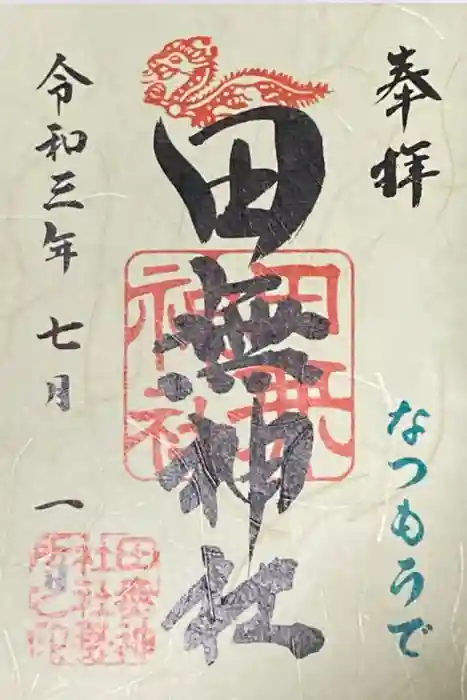 奉拝
なつもうで
田無神社
田無神社
令和三年 七月 一
田無神
社社務
所之印